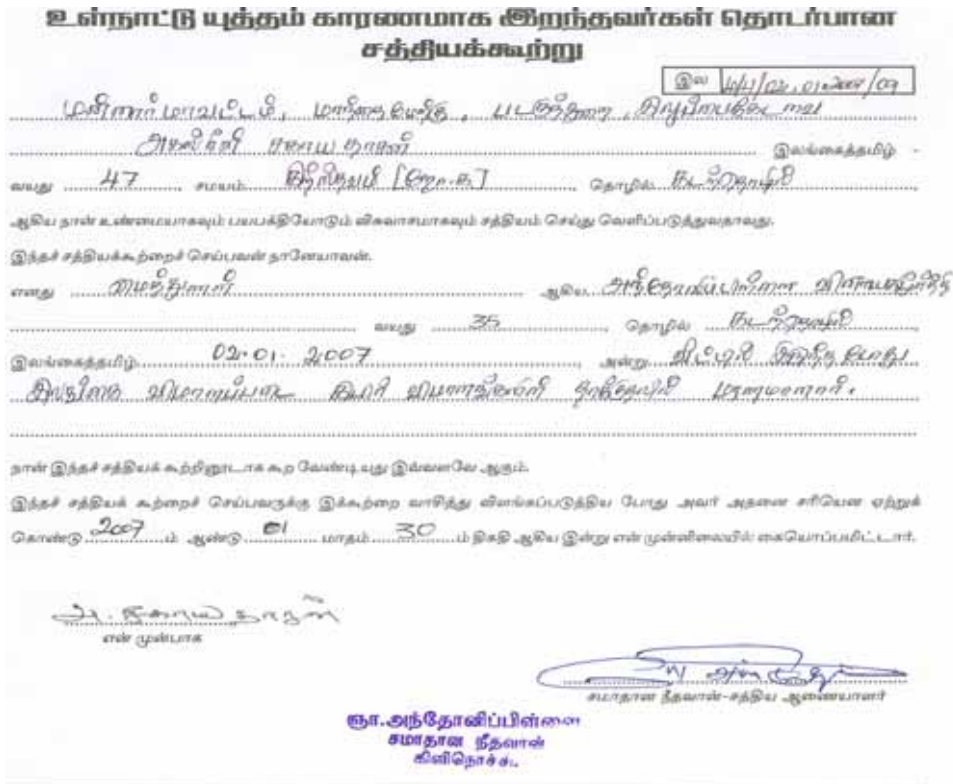 உள்நாட்டு யுத்தம் காரணமாக இறந்தவர்கள் தொடர்பான
சத்தியக்கூற்று
இல
மன்னார் மாவட்டம், மாந்தை மேற்கு, படகுத்துறை, இலுப்பைக்கடவை
சகாய தாசன் இலங்கைத்தமிழ் -
வயது 47 சமயம் கிறிஸ்தவம் [றோ.க] தொழில் கடற்றொழில்
ஆகிய நான் உண்மையாகவும் பயபக்தியோடும் விசுவாசமாகவும் சத்தியம் செய்து வெளிப்படுத்துவதாவது.
இந்தச் சத்தியக்கூற்றைச் செய்பவன் நானேயாவன்.
எனது மைத்துனர் ஆகிய அந்தோனிப்பிள்ளை
வயது 35 தொழில் கடற்றொழில்
இலங்கைத்தமிழ் 02.01.2007 அன்று வீட்டில் இருந்த போது
இலங்கை விமானப்படை கிபிர் விமானங்களின் தாக்குதலில் மரணமானார்.
நான் இந்தச் சத்தியக் கூற்றினூடாக கூற வேண்டியது இவ்வளவே ஆகும்.
இந்தச் சத்தியக் கூற்றைச் செய்பவருக்கு இக்கூற்றை வாசித்து விளங்கப்படுத்திய போது அவர் அதனை சரியென ஏற்றுக்
கொண்டு 2007 ம் ஆண்டு 01 மாதம் 30 ம் திகதி ஆகிய இன்று என் முன்னிலையில் கையொப்பமிட்டார்.
அ. சகாய தாசன்
என் முன்பாக
சமாதான நீதவான்-சத்திய ஆணையாளர்
ஞா.அந்தோனிப்பிள்ளை
சமாதான நீதவான்
கிளிநொச்சி.